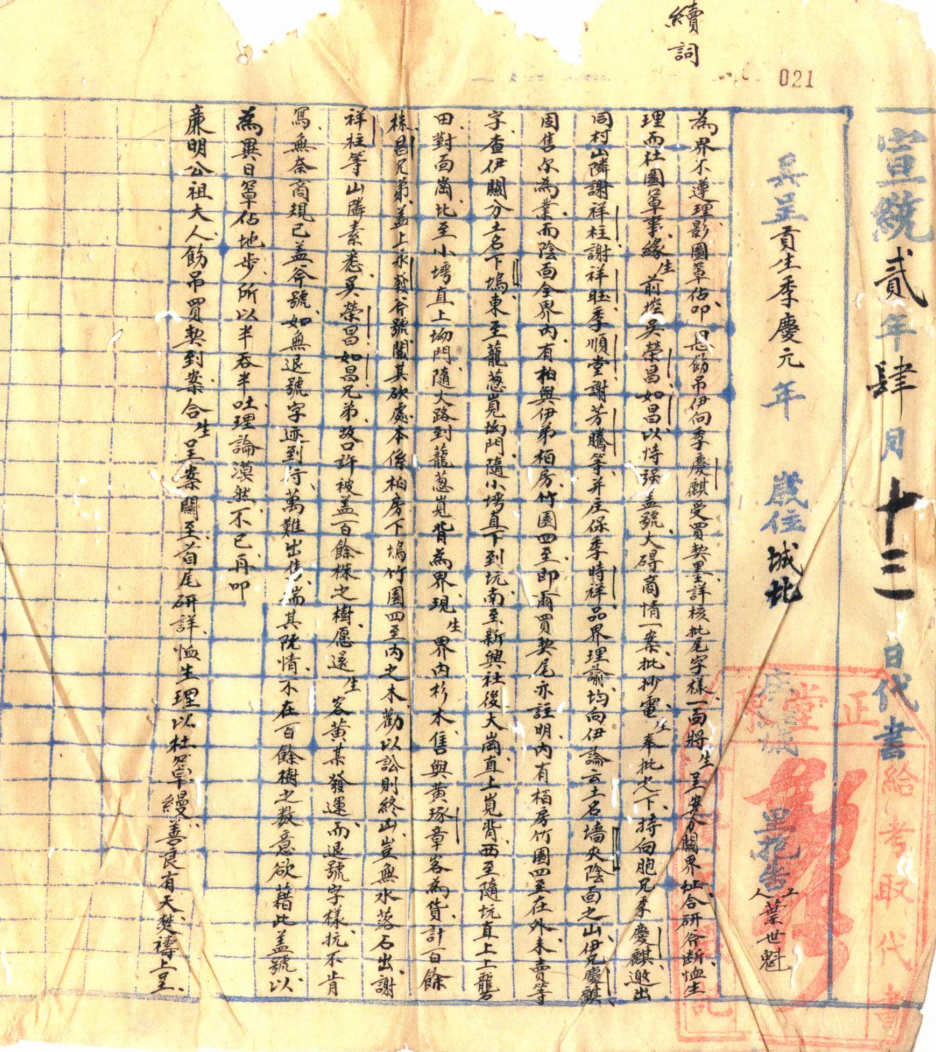 續詞
021
宣統貳年肆月十三日代書
具呈貢生季慶元 年 歲住城北 抱告 工人葉世魁
正堂
給考取代書
記
為界不遵理影圖罩佔叩 恩飭吊伊向季慶麒受買契墨詳核批尾字樣一面將生呈案分關界址合研谷斷恤生
理而杜圖罩事緣生前控吳榮昌如昌以恃强盖號大碍商情一案批抄電生奉批之下持向胞兄季慶麒邀出
同村山隣謝祥柱謝祥旺季順堂謝芳騰等并庄保季時祥品界理諭均向伊論云土名墻央陰面之山伊兄慶麒
固售尔為業而陰面全界內有柏與伊弟栢房竹園四至即爾買契尾亦註明內有栢房竹園四至在外未賣等
字查伊關分土名下塢東至蘢葱嵬坳門隨小塆直下到坑南至新興社後大崗直上嵬背西至隨坑直上上礱
田對面崗北至小塆直上坳門隨大路到蘢葱嵬背為界現生界內杉木售與黃琢章客為貨計一百餘
株昌兄弟盖上永發斧號關其砍處本係柏房下塢竹園四至內之木勸以訟則終凶豈無水落石出謝
祥柱等山隣素悉吳榮昌如昌兄弟改口許被盖一百餘株之樹愿還生客黃某發運而退號字樣抗不肯
寫無奈商規已盖斧號如無退號字迹到行萬難出售揣其詭情不在百餘樹之数意欲藉此盖號以
為異日罩佔地步所以半吞半吐理論漠然不已再叩
亷明公祖大人飭吊買契到案合生呈案關至首尾研詳恤生理以杜罩縵善良有天焚禱上呈